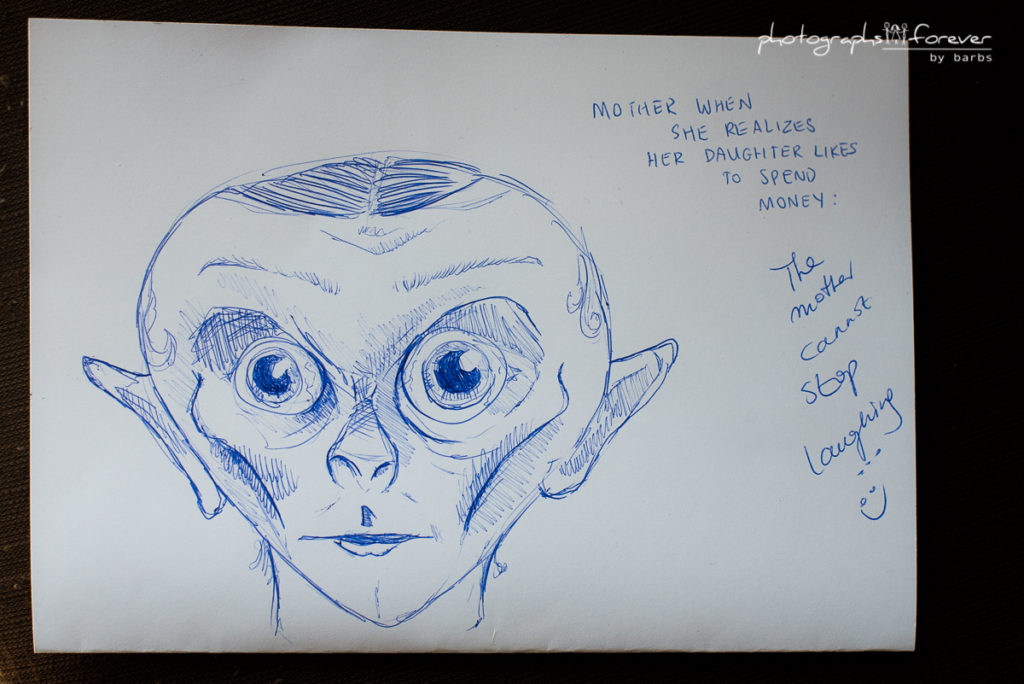 photographs forever
by barbs
MOTHER WHEN
SHE REALIZES
HER DAUGHTER LIKES
TO SPEND
MONEY:
The
mother
cannot
stop
laughing